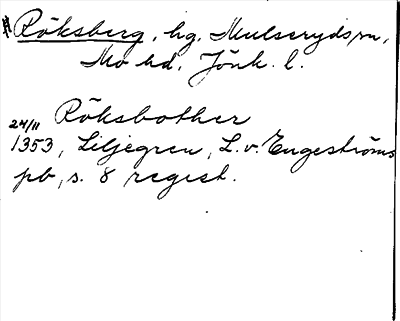 # Röksberg, hg, Mulserydssn,
Mo hd, Jönk. l.
Röksbother
24/11 1353, Liljegren, L. v. Engeströms
pb, s. 8 regist.